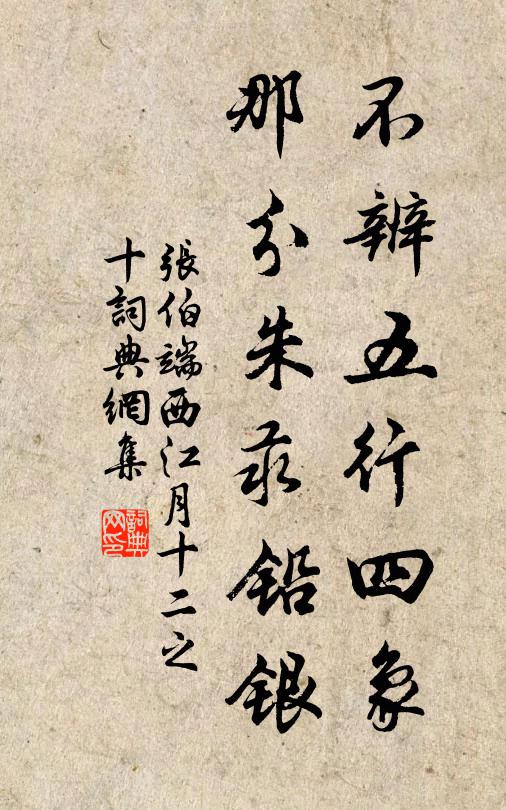 不辨五行四象
那分朱汞鉛銀
張伯端西江月十二之
十詞典網集
詞典
网印